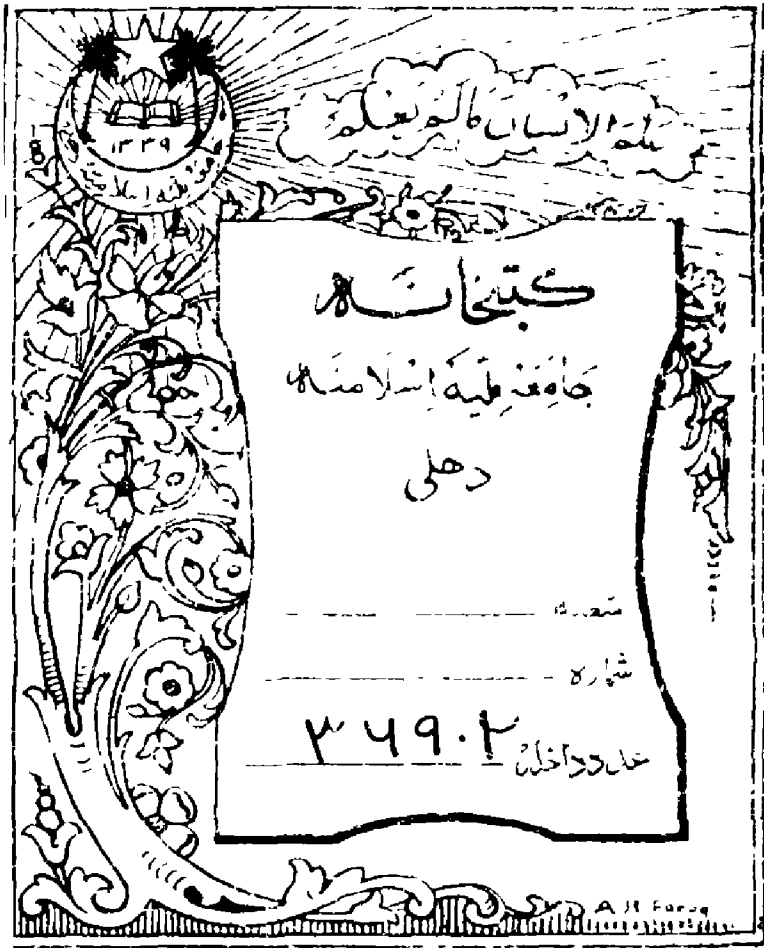 علم الانسان مالم يعلم
۱۳۳۹
جامعہ ملیہ اسلامیہ
کتبخانہ
جامعہ ملیہ اسلامیہ
دهلی
شمارہ
عدد داخلہ ۳۶۹۰۲